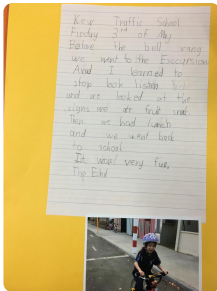 Kew Traffic School
Friday 3rd of May
Before the bell rang
we went to the Exccursion
And I learned to
stop look listen
and we looked at the
signs we ate fruit snack
Then we had lunch
and we went back
to school
It was very fun.
The End